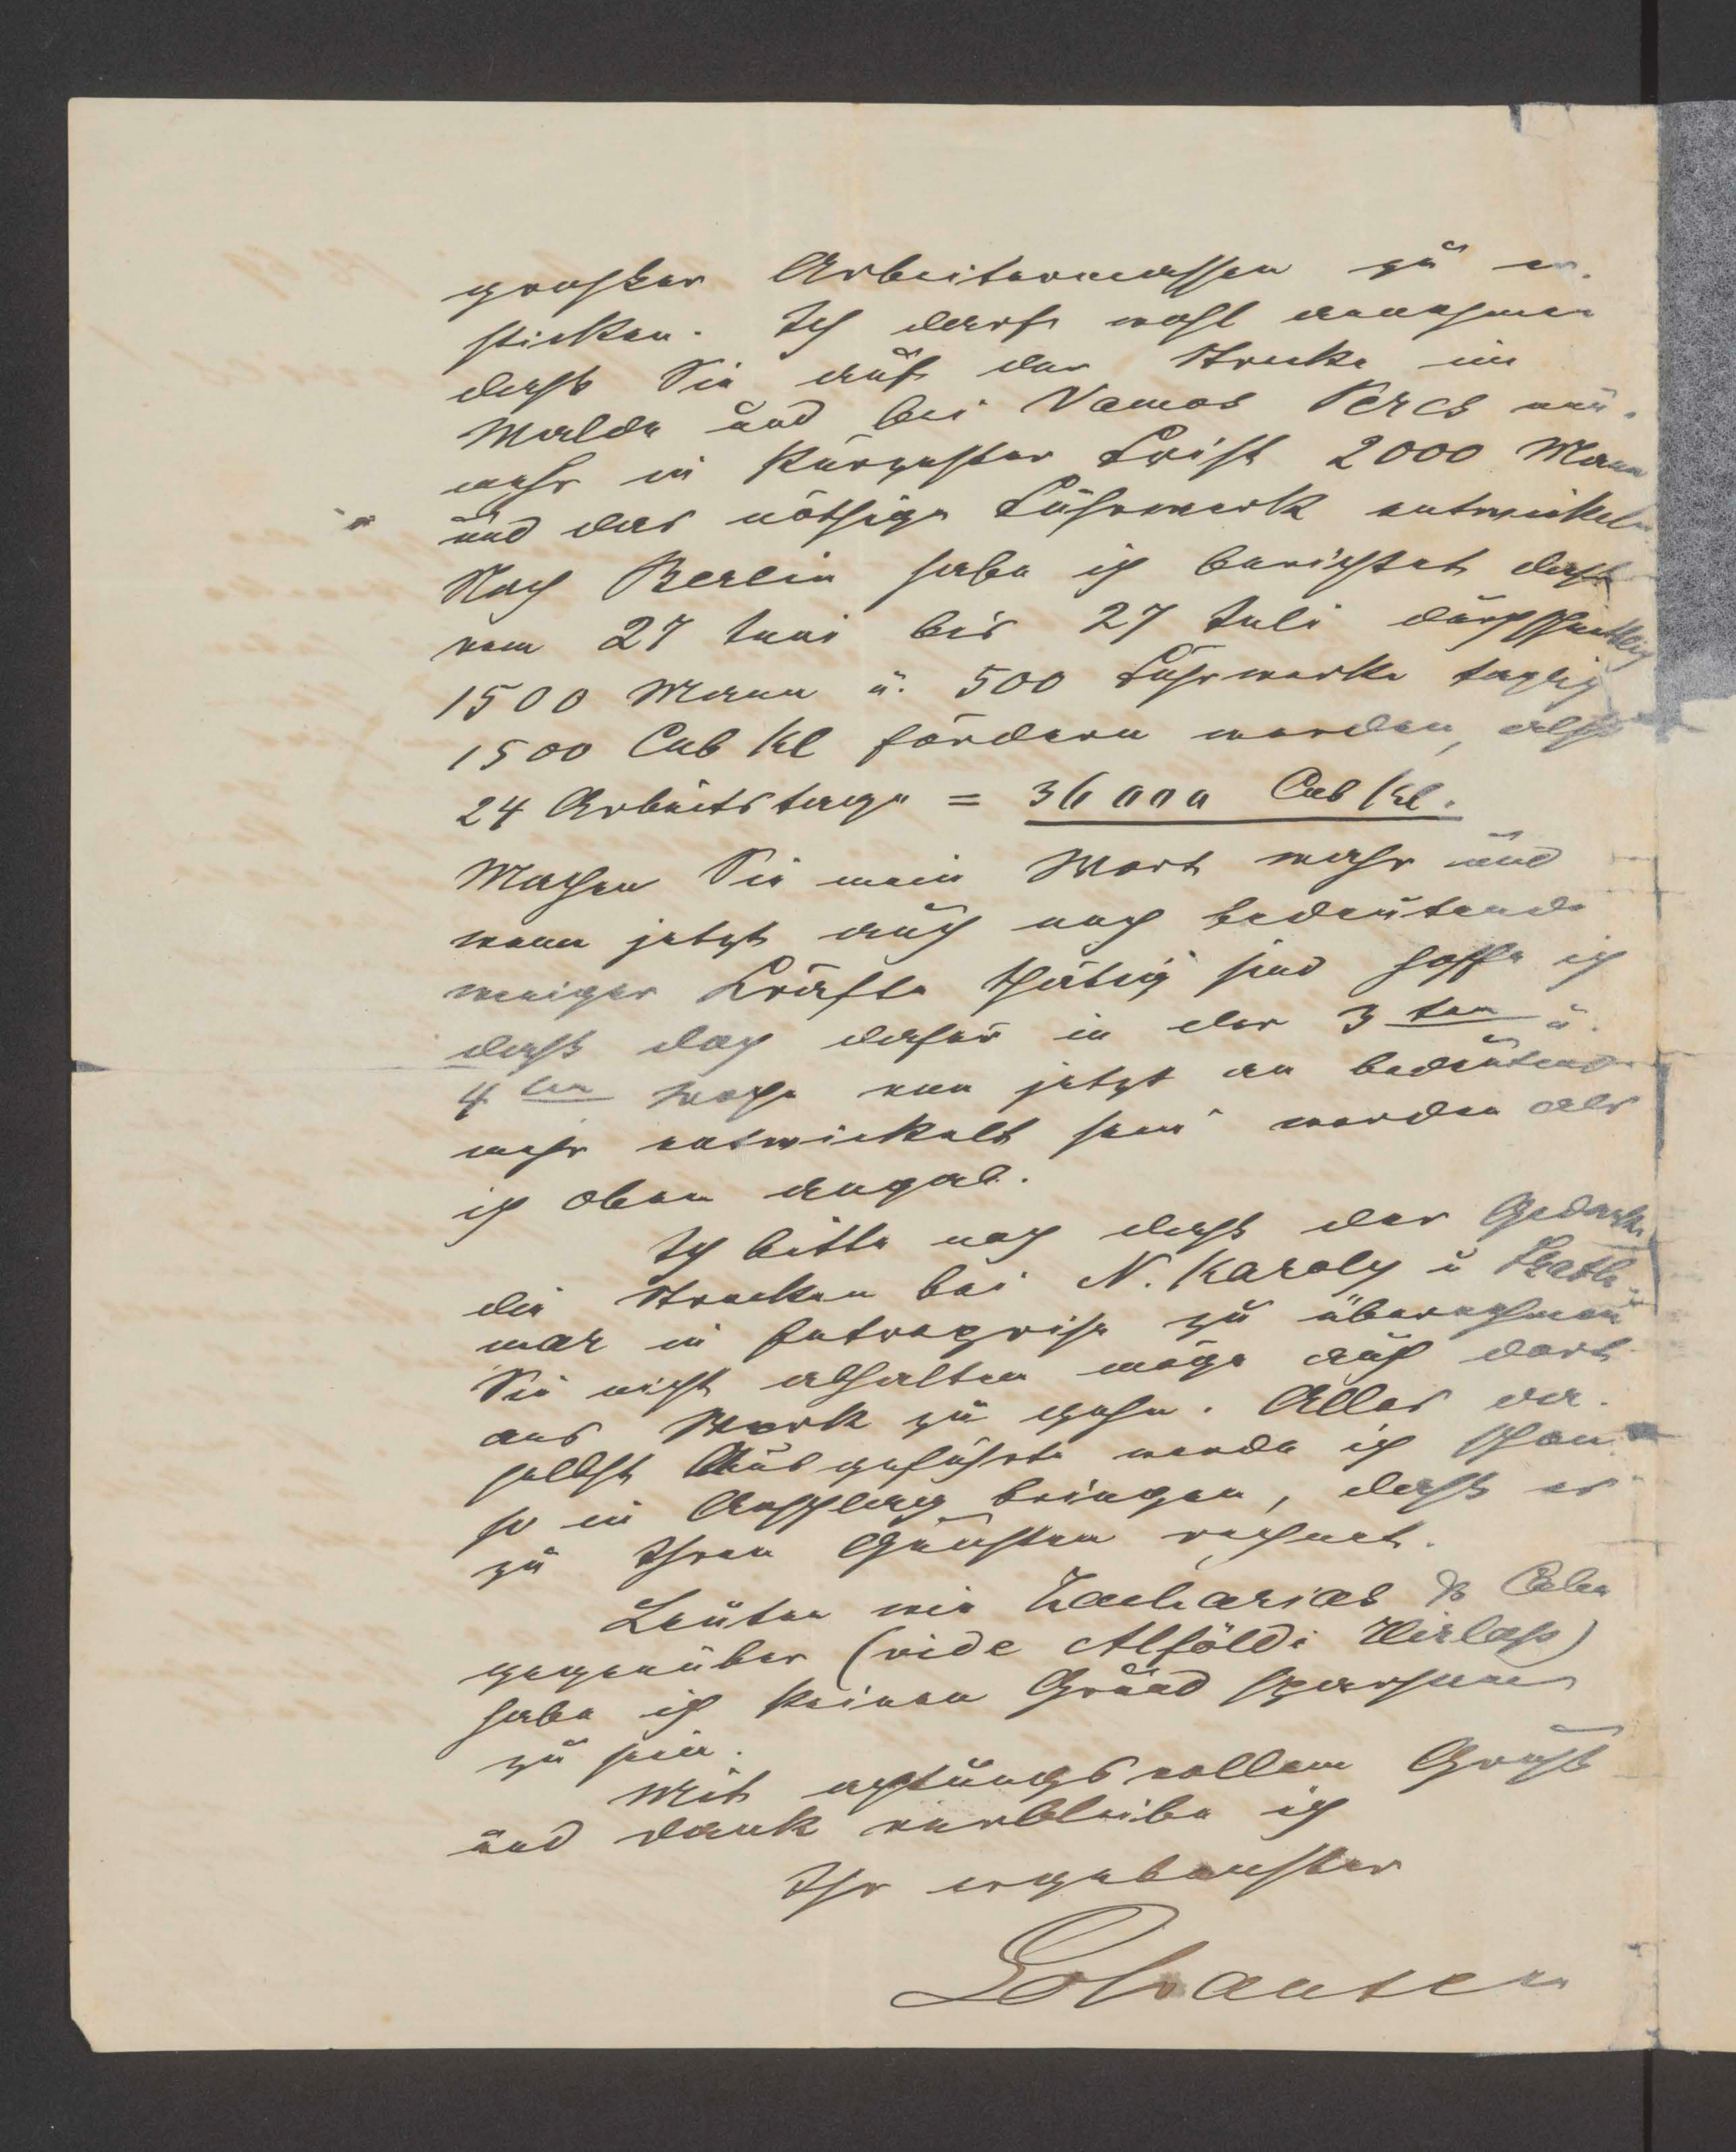 grosser Arbeitermassen zu er-
sticken. Ich darf wohl annehmen
dass Sie auf der Strecke im
Walde und bei Vamos Percs nun-
mehr in kürzester Frist 2000 Mann
und das nöthige Fuhrwerk entwickeln
Nach Berlin habe ich berichtet dass
vom 27 Juni bis 27 Juli durchschnittlich
1500 Mann u. 500 Fuhrwerke taglich
1500 Cub Kl fördern werden, also
24 Arbeitstage = 36000 Cub Kl.
Machen Sie mein Wort wahr und
wenn jetzt auch noch bedeutend
weniger Kräfte thätig sind hoffe ich
dass doch dafür in der 3ten u.
4ten Woche von jetzt an bedeutend
mehr entwickelt sein werden als
ich oben angab.
Ich bitte noch dass der Gedanke
die Strecken bei N. Karoly u Szath-
mar in Entreprise zu übernehmen
Sie nicht abhalten möge auch dort
ans Werk zu gehen. Alles da-
selbst Ausgeführte werde ich schon
so in Anschlag bringen, dass es
zu Ihren Gunsten rechnet.
Leuten wie Zacharias &
gegenüber (vide Alföldi Hirlap)
habe ich keinen Grund sparsam
zu sein.
Mit achtungsvollem Gruss
und Dank verbleibe ich
Ihr ergebenster